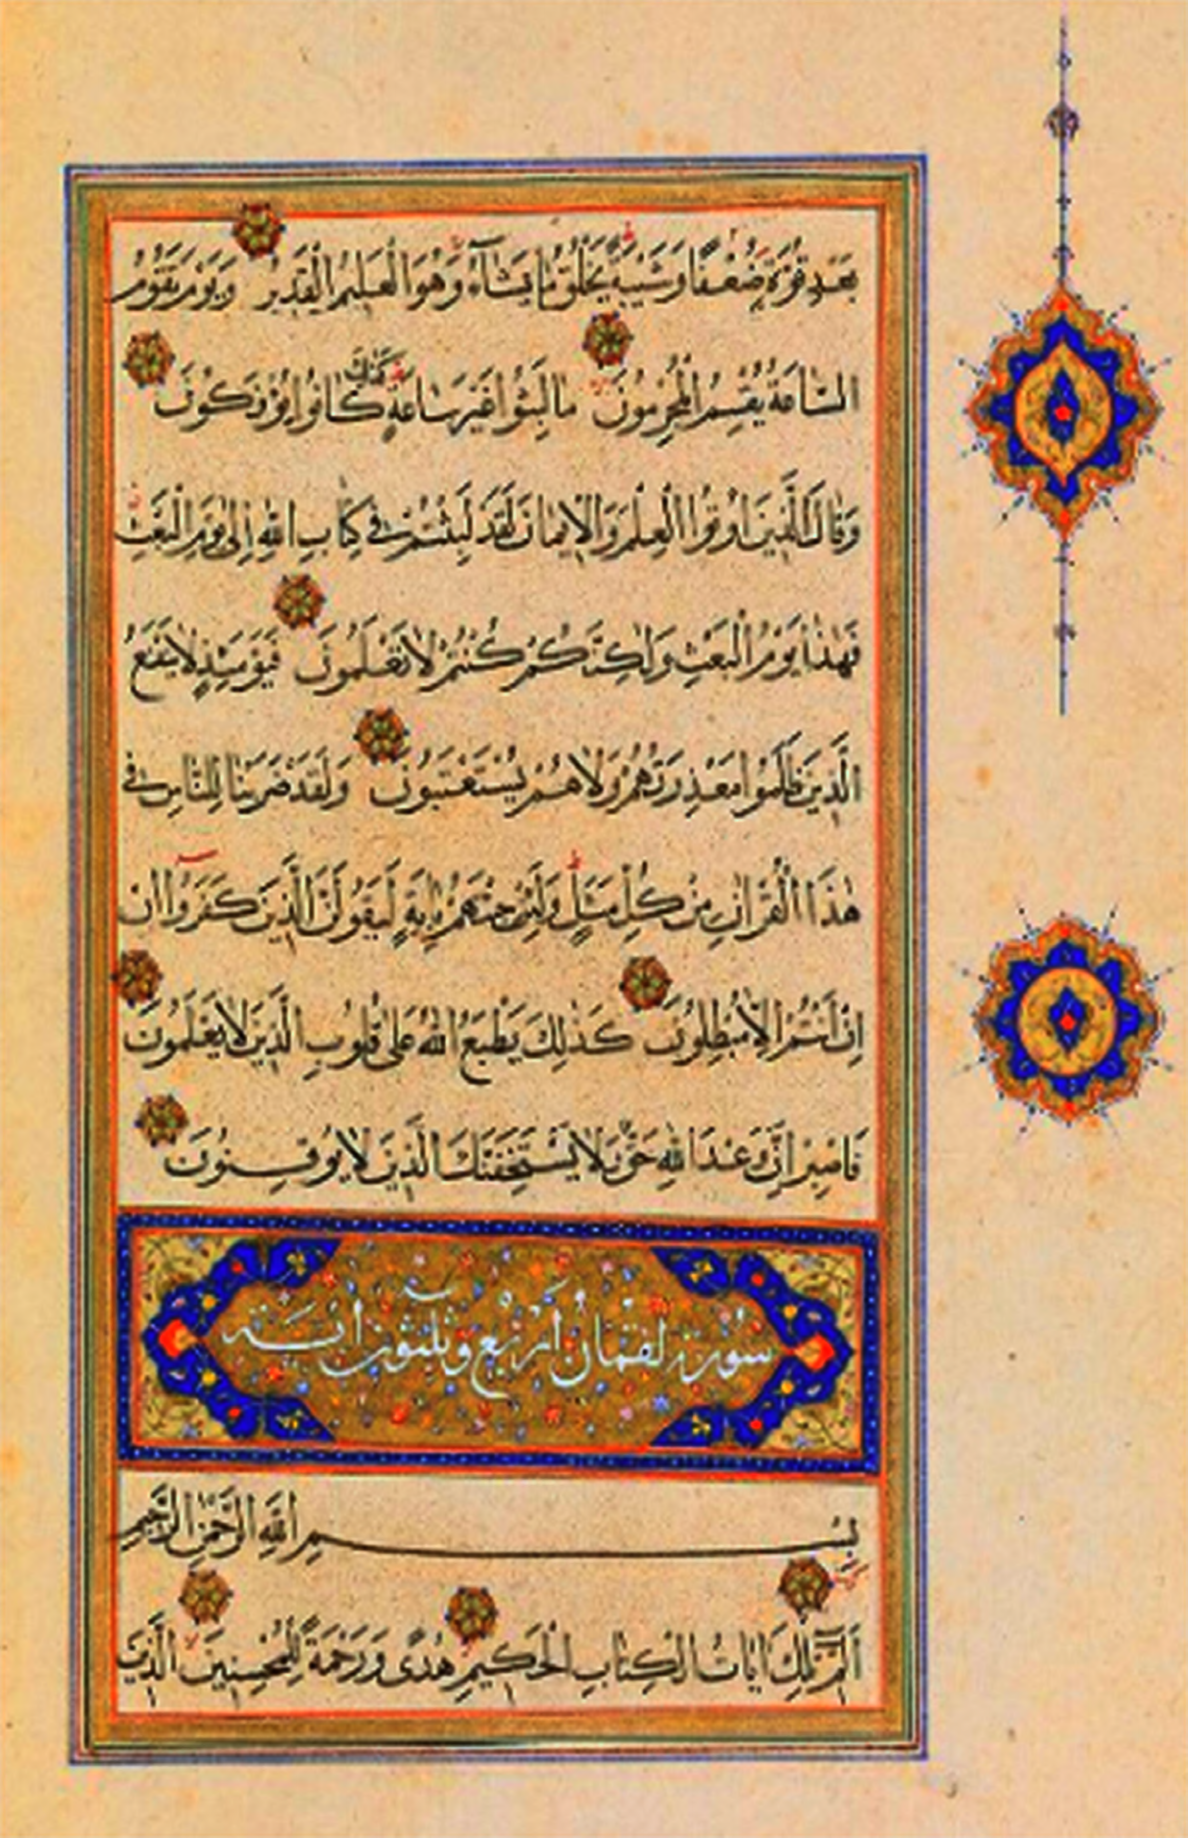 بَعْدِ قُوَّةٍ ضَعْفًا وَشَيْبَةً يَخْلُقُ مَا يَشَاءُ وَهُوَ الْعَلِيمُ الْقَدِيرُ وَيَوْمَ تَقُومُ
السَّاعَةُ يُقْسِمُ الْمُجْرِمُونَ مَا لَبِثُوا غَيْرَ سَاعَةٍ كَذٰلِكَ كَانُوا يُؤْفَكُونَ
وَقَالَ الَّذِينَ اُوتُوا الْعِلْمَ وَالْاِيمَانَ لَقَدْ لَبِثْتُمْ فِي كِتَابِ اللهِ اِلٰى يَوْمِ الْبَعْثِ
فَهٰذَا يَوْمُ الْبَعْثِ وَلٰكِنَّكُمْ كُنْتُمْ لَا تَعْلَمُونَ فَيَوْمَئِذٍ لَا يَنْفَعُ
الَّذِينَ ظَلَمُوا مَعْذِرَتُهُمْ وَلَا هُمْ يُسْتَعْتَبُونَ وَلَقَدْ ضَرَبْنَا لِلنَّاسِ فِي
هٰذَا الْقُرْاٰنِ مِنْ كُلِّ مَثَلٍ وَلَئِنْ جِئْتَهُمْ بِاٰيَةٍ لَيَقُولَنَّ الَّذِينَ كَفَرُوا اِنْ
اِنْ اَنْتُمْ اِلَّا مُبْطِلُونَ كَذٰلِكَ يَطْبَعُ اللهُ عَلٰى قُلُوبِ الَّذِينَ لَا يَعْلَمُونَ
فَاصْبِرْ اِنَّ وَعْدَ اللهِ حَقٌّ وَلَا يَسْتَخِفَّنَّكَ الَّذِينَ لَا يُوقِنُونَ
سُورة لقمان اَربَع وثلثون اٰية
بِسْمِ اللهِ الرَّحْمٰنِ الرَّحِيمِ
الٓمٓ تِلْكَ اٰيَاتُ الْكِتَابِ الْحَكِيمِ هُدًى وَرَحْمَةً لِلْمُحْسِنِينَ الَّذِينَ